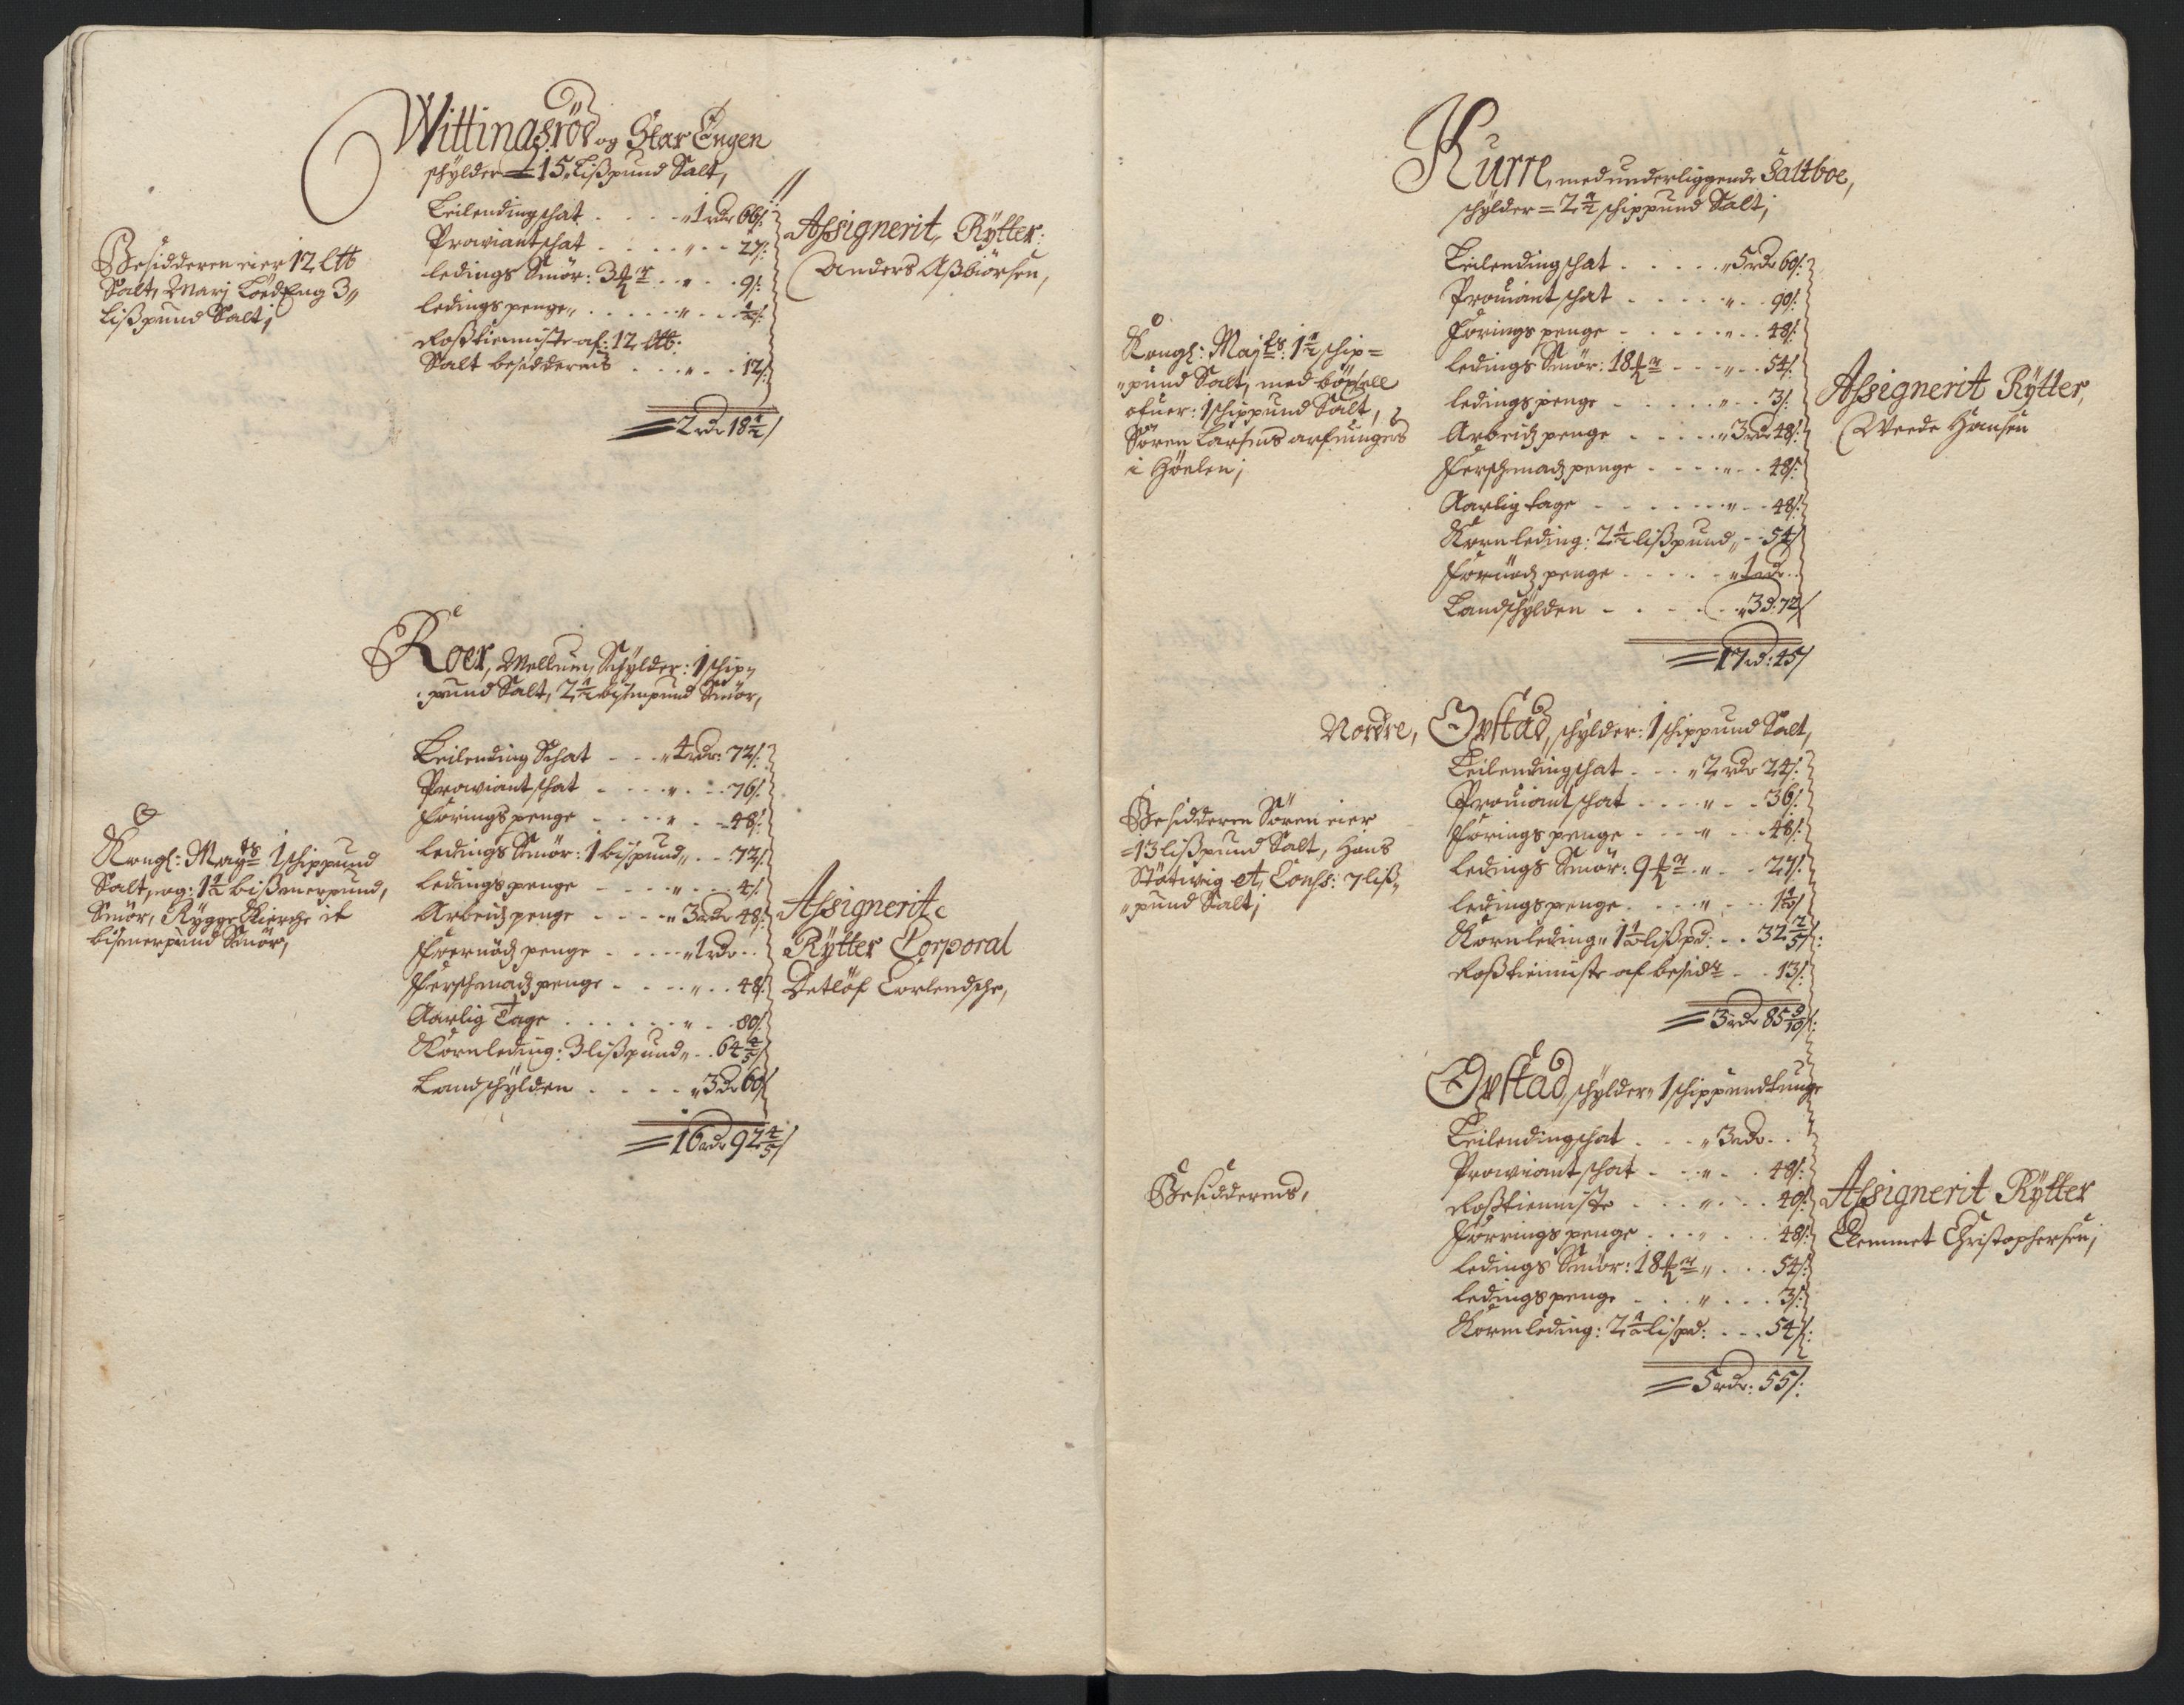 Wittingsröd og Star Engen
schÿlder = 15 Lißpund Salt,
Besidderen eier 12 Ltt
Salt, Marj Löed Eng 3„
Lißpund Salt;
Leilendingschat . . . . „ 1 rdr 66 s:
Proviantschat . . . . „ . . 27 s:
Ledings Smör: 3 1/2 mr . . „ . . 9 s:
Ledings penge„ . . . . . „ . . 1/2 s:
Roßtienniste af: 12 Ltt:
Salt besidderens . . . „ . . 12 s:
= 2 rdr 18 1/2 s
Assignerit, Rÿtter:
Anders Aßbiörsen,
Roer, Mellum, Schÿlder: 1 schip„
pund Salt, 2 1/2 bismpund Smör,
Kongl: Mayts 1 schippund
Salt, og: 1 1/2 bißmerpund,
Smör, Rÿgge Kierche it
bismerpund Smör,
Leilending Schat . . . „ 4 rdr: 72 s:
Proviantschat . . . . „ . . 76 s:
Förings penge . . . . „ . . 48 s:
Ledings Smör: 1 bispund„ . . 72 s:
Ledings penge . . . . „ . . . 4 s:
Arbeidz penge . . . . „ 3 rdr 48 s:
Foernödz penge . . . . . „ 1 rdr . .
Ferschmadz penge . . . . „ . . 48 s:
Aarlig Tage . . . . . . „ . . 80 s:
Kornleding: 3 lißpund„ . . 64 4/5 s
Landschÿlden . . . . . „ 3 dr 60 s
= 16 rdr 92 4/5 s
Assignerit
Rÿtter Corporal
Detlöf Corlendsche,
Kurre, med underliggende Saltboe,
schÿlder = 2 1/2 schippund Salt;
Kongl: Mayts: 1 1/2 schip=
„pund Salt, med böxsell
ofuer: 1 schippund Salt,
Sören Larsens arfuingers
i Höelen;
Leilendingschat . . . . . „ 5 rdr 60 s:
Proviantschat . . . . . „ . . 90 s:
Förings penge . . . . . „ . . 48 s:
Ledings Smör: 18 1/2 mr . . . „ . . 54 s:
Ledings penge . . . . . „ . . 3 s:
Arbeidz penge . . . . . „ 3 rdr 48 s:
Ferschmadz penge . . . . „ . . 48 s:
Aarlig tage . . . . . . . „ . . 48 s:
Kornleding: 2 1/2 lißpund„ . . 54 s
Fornödz penge . . . . . „ 1 rdr . .
Landschÿlden . . . . . „ 3 d: 72 s
= 17 rd: 45 s
Assignerit Rÿtter,
Weede Hansen
Nordre, Ovstad, schÿlder: 1 schippund Salt,
Besidderen Sören eier
=13 lißpund Salt, Hans
Störwig et, Cons: 7 liß„
„pund Salt;
Leilendingschat . . . „ 2 rdr 24 s:
Proviantschat . . . . „ . . 36 s:
Förings penge . . . . „ . . 48 s:
Ledings Smör: 9 1/2 mr . „ . . 27 s:
Ledings penge . . . . „ . . . 1 1/2 s
Kornleding„ 1 1/2 lißpd: . . 32 2/5 s:
Roßtienniste af besidr . . 13 s:
= 3 rdr 85 9/10 s:
Ovstad, schÿlder„ 1 schippundtunge
Besidderens,
Leilendingschat . . . „ 3 rdr . .
Proviantschat . . . „ . . 48 s:
Roßtienniste . . . „ . . . 40 s:
Förrings penge . . . „ . . . 48 s:
Ledings Smör: 18 1/2 mr „ . . . 54 s:
Ledings penge . . . „ . . . 3 s:
Kornleding: 2 1/2 lispd: . . . 54 s:
= 5 rdr: 55 s:
Assignerit Rÿtter
Clemmet Christophersen;